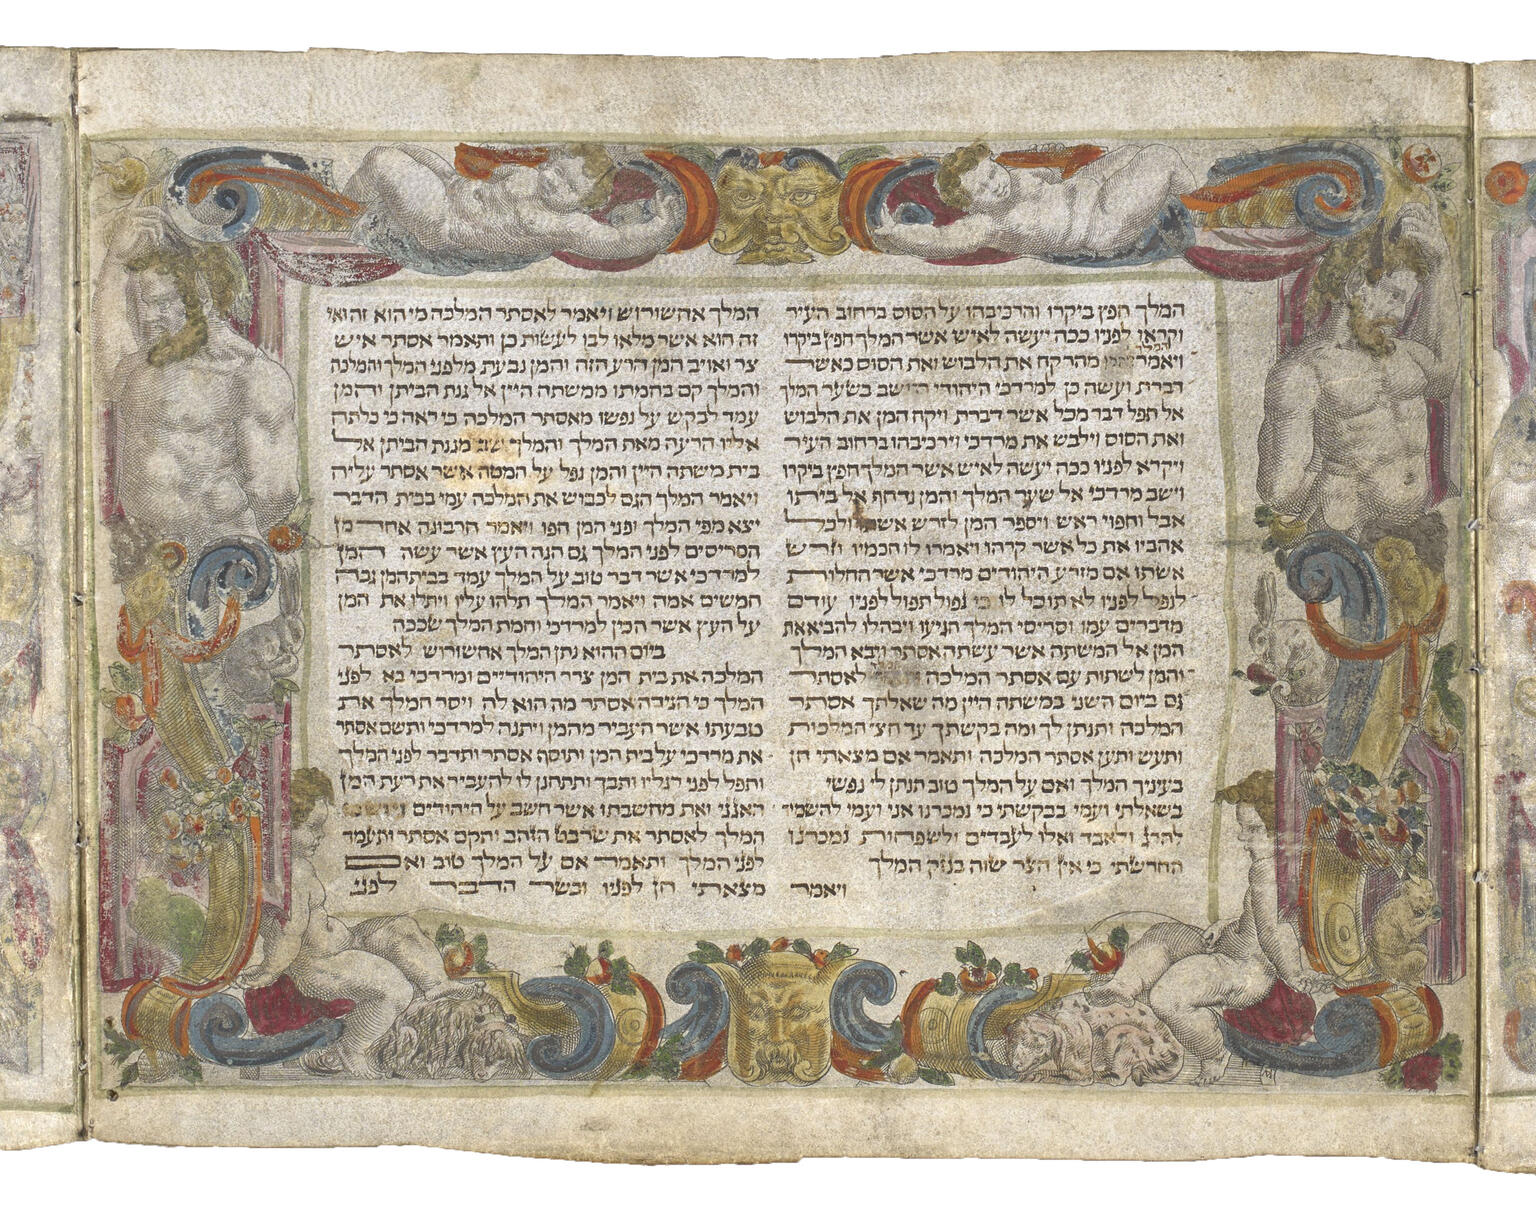 המלך חפץ ביקרו והרכיבהו על הסוס ברחוב העיר
וקראו לפניו ככה יעשה לאיש אשר המלך חפץ ביקרו
המלך
ויאמר להמן מהר קח את הלבוש ואת הסוס כאשר
דברת ועשה כן למרדכי היהודי היושב בשער המלך
אל תפל דבר מכל אשר דברת ויקח המן את הלבוש
ואת הסוס וילבש את מרדכי וירכיבהו ברחוב העיר
ויקרא לפניו ככה יעשה לאיש אשר המלך חפץ ביקרו
וישב מרדכי אל שער המלך והמן נדחף אל ביתו
אבל וחפוי ראש ויספר המן לזרש אשתו ולכל
אהביו את כל אשר קרהו ויאמרו לו חכמיו וזרש
אשתו אם מזרע היהודים מרדכי אשר החלות
לנפל לפניו לא תוכל לו כי נפול תפול לפניו עודם
מדברים עמו וסריסי המלך הגיעו ויבהלו להביא את
המן אל המשתה אשר עשתה אסתר ויבא המלך
והמן לשתות עם אסתר המלכה לאסתר
גם ביום השני במשתה היין מה שאלתך אסתר
המלכה ותנתן לך ומה בקשתך עד חצי המלכות
ותעש ותען אסתר המלכה ותאמר אם מצאתי חן
בעיניך המלך ואם על המלך טוב תנתן לי נפשי
בשאלתי ועמי בבקשתי כי נמכרנו אני ועמי להשמי
להרג ולאבד ואלו לעבדים ולשפחות נמכרנו
החרשתי כי אין הצר שוה בנזק המלך
ויאמר
המלך אחשורוש ויאמר לאסתר המלכה מי הוא זה ואי
זה הוא אשר מלאו לבו לעשות כן ותאמר אסתר איש
צר ואויב המן הרע הזה והמן נבעת מלפני המלך והמלכה
והמלך קם בחמתו ממשתה היין אל גנת הביתן והמן
עמד לבקש על נפשו מאסתר המלכה כי ראה כי כלתה
אליו הרעה מאת המלך והמלך שב מגנת הביתן אל
בית משתה היין והמן נפל על המטה אשר אסתר עליה
ויאמר המלך הגם לכבוש את המלכה עמי בבית הדבר
יצא מפי המלך ופני המן חפו ויאמר חרבונה אחד מן
הסריסים לפני המלך גם הנה העץ אשר עשה המן
למרדכי אשר דבר טוב על המלך עמד בבית המן גבה
חמשים אמה ויאמר המלך תלהו עליו ויתלו את המן
על העץ אשר הכין למרדכי וחמת המלך שככה
ביום ההוא נתן המלך אחשורוש לאסתר
המלכה את בית המן צרר היהודיים ומרדכי בא לפני
המלך כי הגידה אסתר מה הוא לה ויסר המלך את
טבעתו אשר העביר מהמן ויתנה למרדכי ותשם אסתר
את מרדכי על בית המן ותוסף אסתר ותדבר לפני המלך
ותפל לפני רגליו ותבך ותתחנן לו להעביר את רעת המן
האגגי ואת מחשבתו אשר חשב על היהודים ויושט
המלך לאסתר את שרבט הזהב ותקם אסתר ותעמד
לפני המלך ותאמר אם על המלך טוב ואם
מצאתי חן לפניו וכשר הדבר לפני